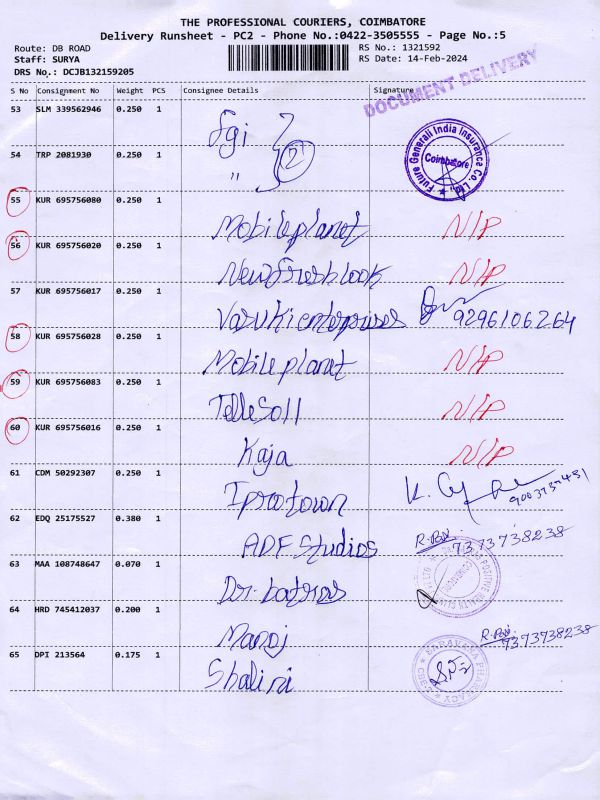 THE PROFESSIONAL COURIERS, COIMBATORE
Delivery Runsheet - PC2 - Phone No.:0422-3505555 - Page No.:5
Route: DB ROAD RS No.: 1321592
Staff: SURYA RS Date: 14-Feb-2024
DRS No.: DCJB132159205
DOCUMENT DELIVERY
S No Consignment No Weight PCS Consignee Details Signature
53 SLM 339562946 0.250 1 Sgi
2
54 TRP 2081930 0.250 1 "
Future Generali India Insurance Co. Ltd.
Coimbatore
55 KUR 695756080 0.250 1 Mobileplanet N/P
56 KUR 695756020 0.250 1 Newfreshlook N/P
57 KUR 695756017 0.250 1 Vasuki enterprises 9296106264
58 KUR 695756028 0.250 1 Mobileplanet N/P
59 KUR 695756083 0.250 1 TelleSoll N/P
60 KUR 695756016 0.250 1 Kaja N/P
61 CDM 50292307 0.250 1
62 EDQ 25175527 0.380 1 ADF Studios 7373738238
63 MAA 108748647 0.070 1 Dr. batras
64 HRD 745412037 0.200 1 Manoj 7373738238
65 DPI 213564 0.175 1 Shalini
PHARMACY